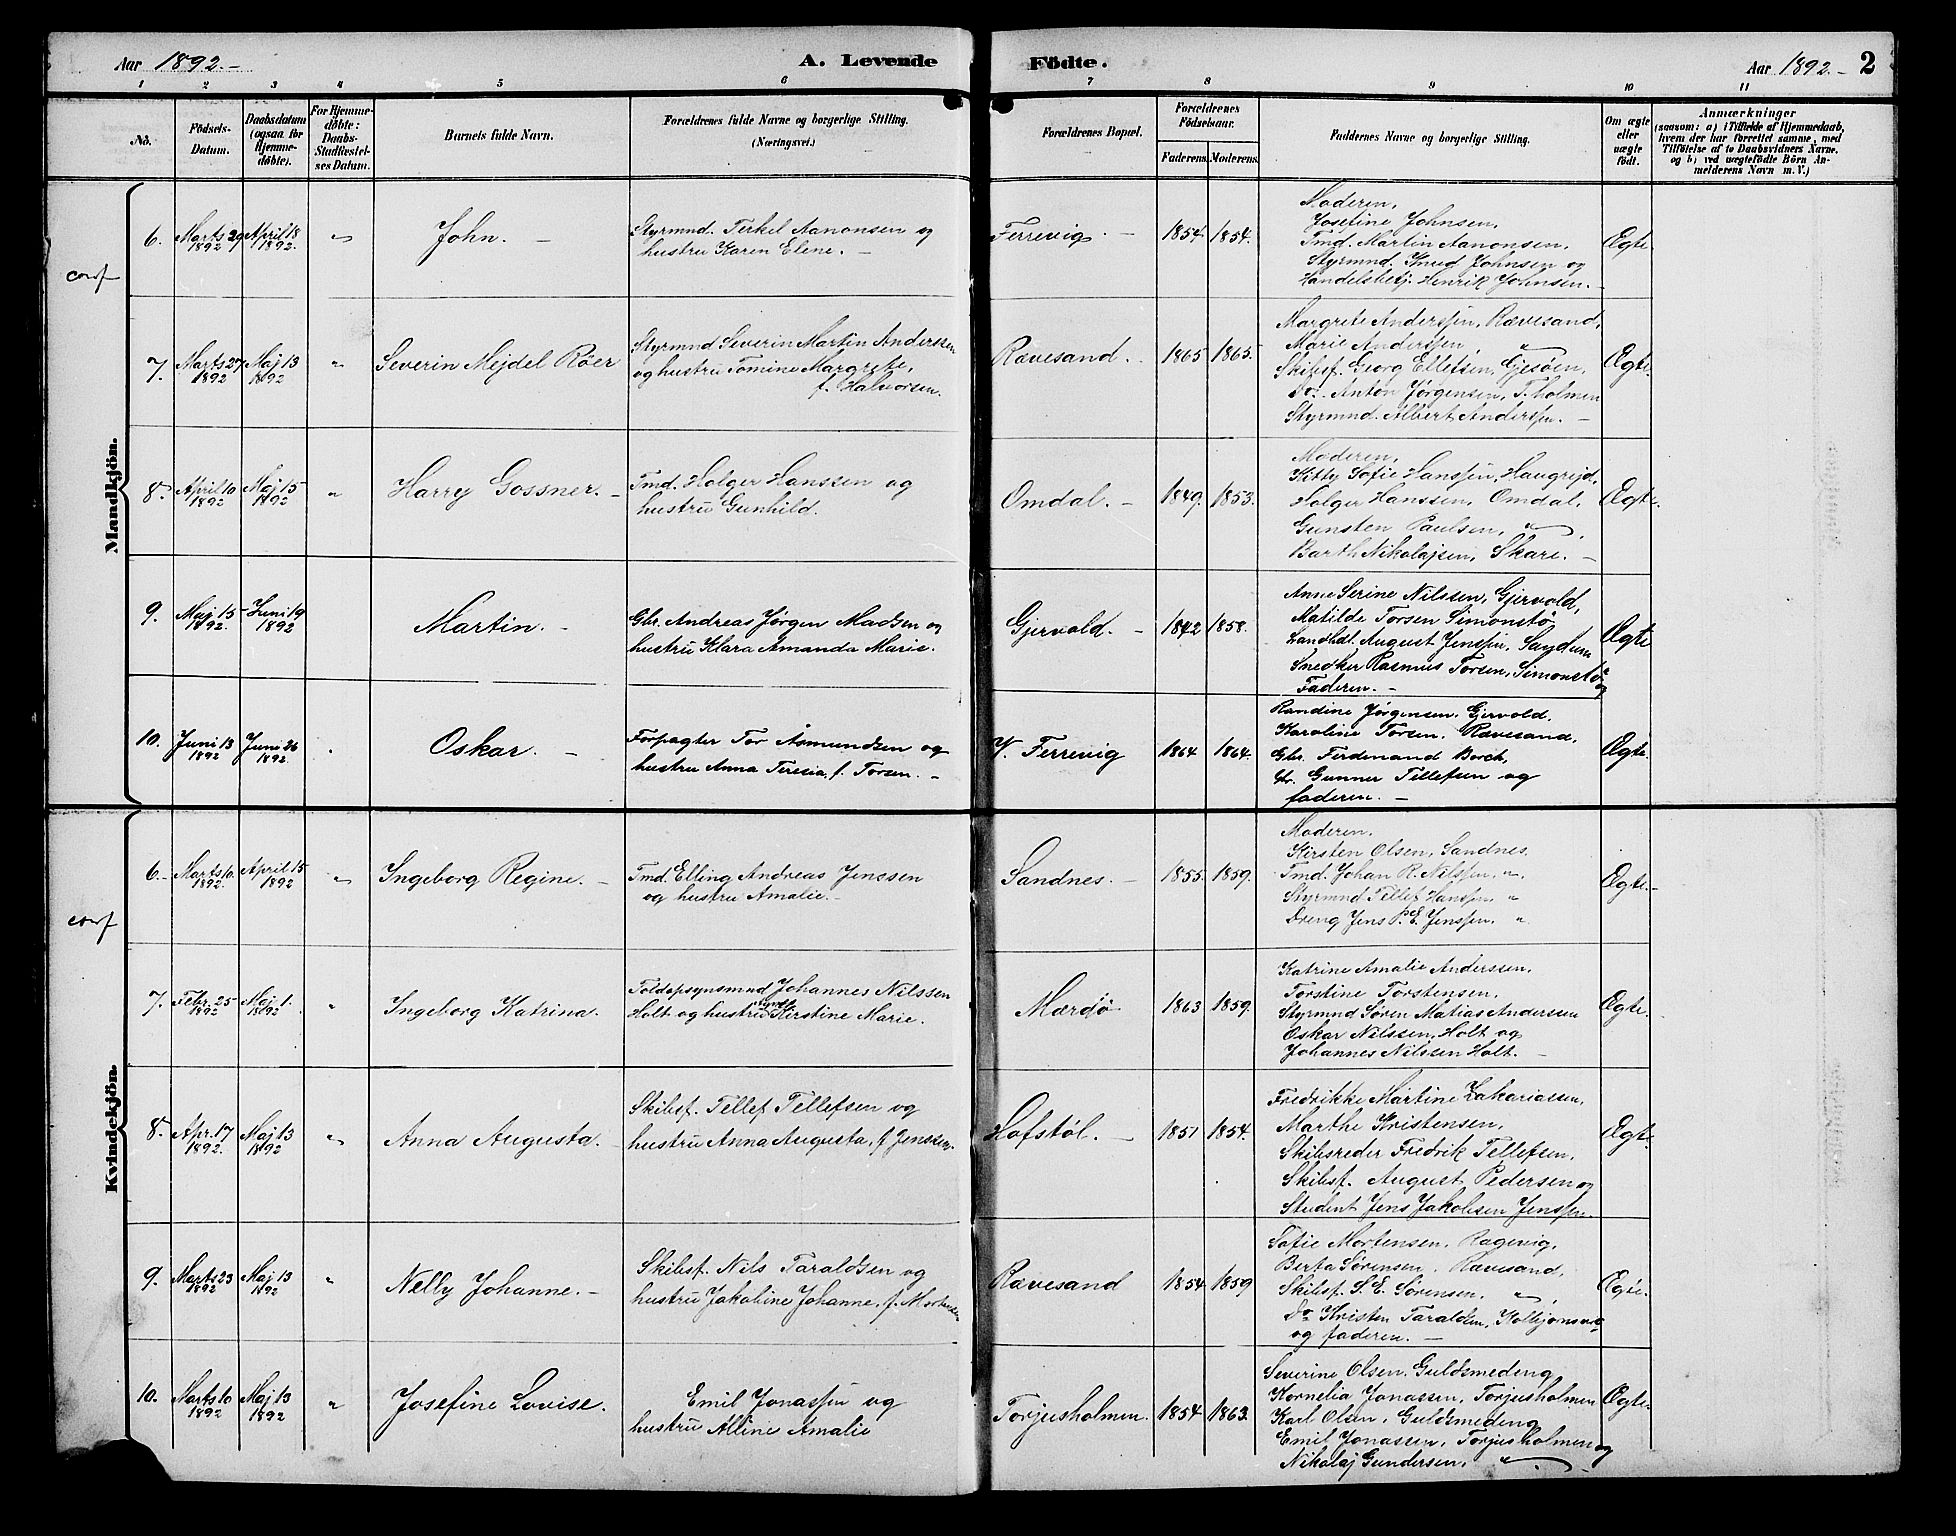 Aar 1892.-
A. Levende
Fødte.
Aar 1892.- 2
1 2 3 4 5 6 7 8 9 10 11
No.
Fødsels-Datum.
Daabsdatum (ogsaa for Hjemmedøbte).
For Hjemmedøbte: Daabs-Stadfæstelses Datum.
Barnets fulde Navn.
Forældrenes fulde Navne og borgerlige Stilling. (Næringsvei.)
Forældrenes Bopæl.
Forældrenes Fødselsaar.
Faderens. Moderens.
Faddernes Navne og borgerlige Stilling.
Om ægte eller uægte født.
Anmærkninger
(saasom: a) i Tilfælde af Hjemmedaab, hvem der har forrettet samme, med Tilføielse af to Daabsvidners Navne, og b) ved uægtefødte Børn Anmelderens Navn m. V.)
Mandkjøn.
conf
6. Marts 29 1892 April 18 1892. " John. -
Styrmnd. Terkel Aanonsen og
hustru Karen Elene. -
Ferrevig. - 1854. 1854.
Moderen,
Josefine Johnsen,
Tmd. Martin Aanonsen,
Styrmnd. Knud Johnsen og
Handelsbetj. Henrik Johnsen. -
Ægte
7. Marts 27 1892 Maj 13 1892 " Severin Mejdel Röer
Styrmnd Severin Martin Anderssen
og hustru Tomine Margrete,
f. Halvorsen.
Rævesand. 1865 1865.
Margrete Anderssen, Rævesand,
Marie Anderssen "
Skibsf. Georg Ellefsen, Gjesöen,
Do. Anton Jørgensen, T. holmen
Styrmnd. Albert Anderssen. -
Ægte.
8. April 10 1892 Maj 15 1892 " Harry Gossner. -
Tmd. Holger Hanssen og
hustru Gunhild.
Omdal. - 1849. 1853.
Moderen,
Kitty Sofie Hanssen, Haugrejd,
Holger Hanssen, Omdal,
Gunsten Paulsen, "
Barth Nikolajsen, Skare. -
Ægte.
9. Maj 15 1892. Juni 19 1892 Martin. -
Gbr. Andreas Jørgen Madsen og
hustru Klara Amanda Marie.
Gjervold. - 1842 1858.
Anne Serine Nilssen, Gjervold,
Matilde Torsen Simonstø
Landhdl. August Jenssen, Sandum
Snedker Rasmus Torsen, Simonstø og
Faderen. -
Ægte
10. Juni 13 1892 Juni 26 1892. Oskar. -
Forpagter Tor Asmundsen og
hustru Anna Teresia, f. Torsen. -
V. Ferrevig 1864 1864.
Randine Jørgensen, Gjervold,
Karoline Torsen, Rævesand,
Gbr. Ferdinand Borch,
Gunner Tellefsen og
faderen. -
Ægte.
Kvindekjøn.
conf
6. Marts 10. 1892. April 15 1892 " Ingeborg Regine. -
Tmd. Elling Andreas Jenssen
og hustru Amalie. -
Sandnes. - 1855. 1859.
Moderen,
Kirsten Olsen, Sandnes,
Tmd. Johan R. Nilssen, "
Styrmnd Tellef Hanssen, "
Dreng Jens P. E. Jenssen, "
Ægte. -
7. Febr. 25 1892 Maj 1. 1892 " Ingeborg Katrina.
Toldopsynsmnd Johannes Nilssen
Holt og hustru Kirstine Marie.
Mærdö 1863 1859.
Katrine Amalie Anderssen,
Torstine Torstensen,
Styrmnd Søren Matias Anderssen
Oskar Nilssen, Holt og
Johannes Nilssen Holt. -
Ægte.
8. Apr. 17 1892. Maj 13 1892 " Anna Augusta. -
Skibsf. Tellef Tellefsen og
hustru Anna Augusta, f. Jenssen.
Hofstøl. - 1851 1854.
Fredrikke Martine Zakariassen,
Marthe Kristensen,
Skibsreder Fredrik Tellefsen,
Skibsf. August Pedersen og
Student Jens Jakobsen Jenssen.
Ægte.
9. Marts 23 1892 Maj 13 1892 " Nelly Johanne. -
Skibsf. Nils Taraldsen og
hustru Jakobine Johanne, f. Mortensen
Rævesand 1854 1859
Sofie Mortensen, Ragevig,
Berta Sørensen, Rævesand,
Skibsf. S. E. Sørensen, "
Do Kristen Taraldsen, Kolbjørnsvig
og faderen. -
Ægte.
10. Marts 10 1892 Maj 13 1892 " Josefine Lovise.
Emil Jonassen og
hustru Alline Amalie
Torjusholmen. 1854 1863.
Severine Olsen, Guldsmedeng
Kornelia Jonassen, Torjusholmen
Karl Olsen, Guldsmedeng
Emil Jonassen, Torjusholmen og
Nikolaj Gundersen, "
Ægte.